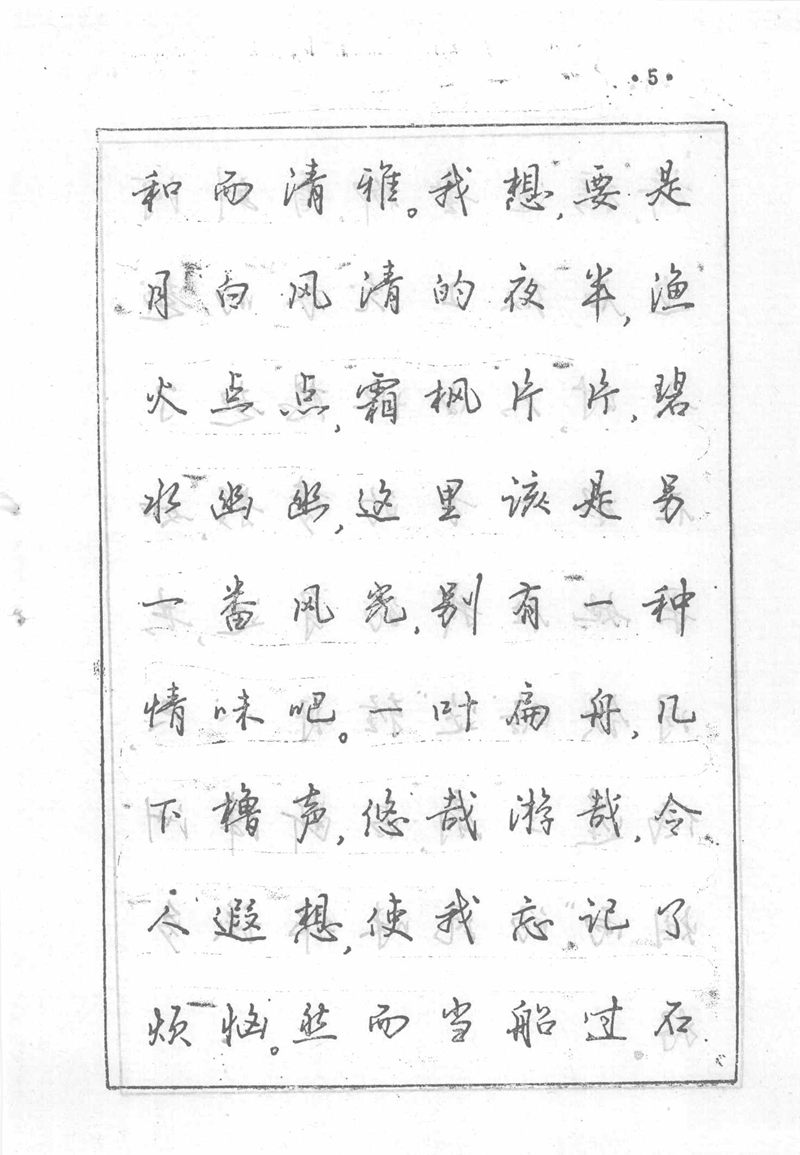 ·5·
和而清雅。我想,要是
月白风清的夜半,渔
火点点,霜枫片片,碧
水幽幽,这里该是另
一番风光,别有一种
情味吧。一叶扁舟,几
下橹声,悠哉游哉,令
人遐想,使我忘记了
烦恼。然而当船过石